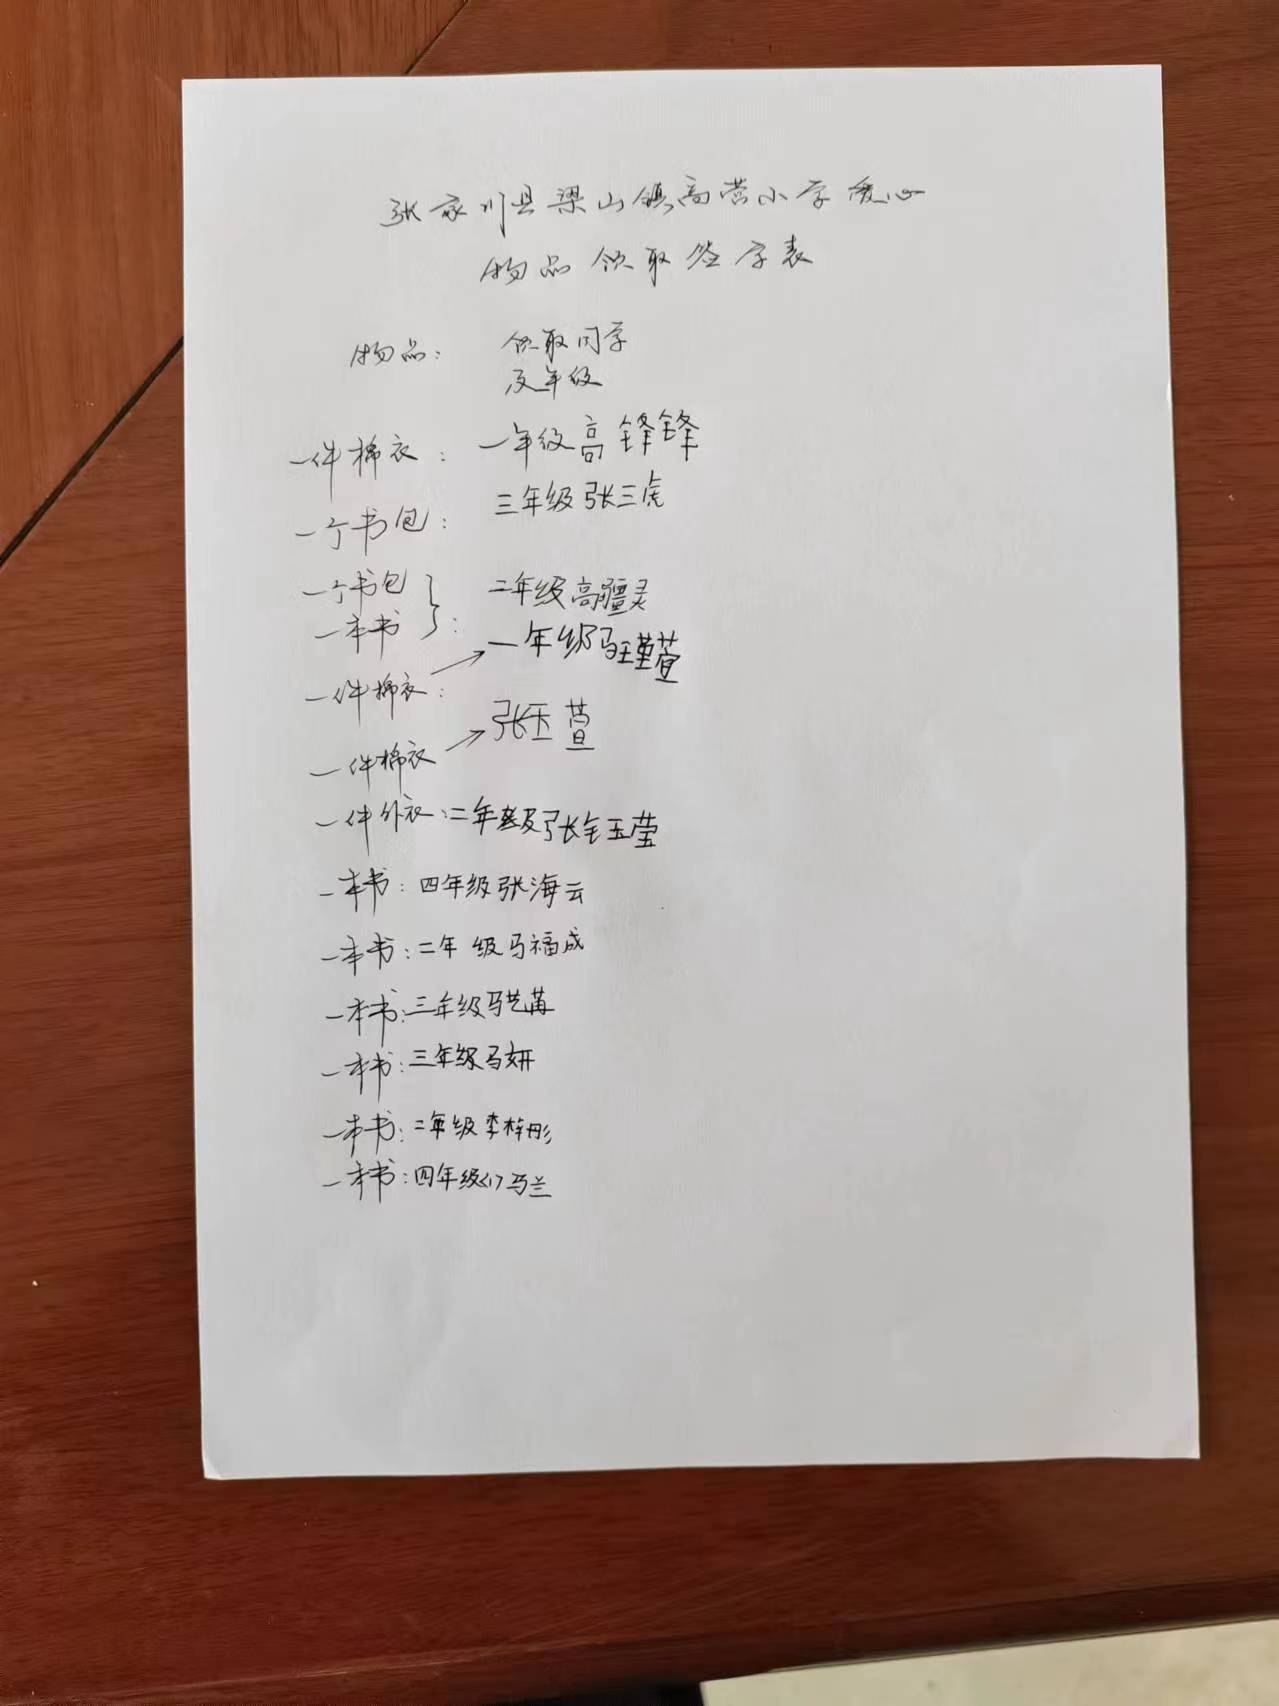 张家川县梁山镇高营小学爱心
物品领取签字表
物品: 领取同学
及年级
一件棉衣: 一年级高锋锋
一个书包: 三年级张三虎
一个书包 二年级高疆灵
一本书:
一件棉衣: → 一年级马瑾萱
一件棉衣 → 张玉萱
一件外衣:二年级张钰莹
一本书:四年级张海云
一本书:二年级马福成
一本书:三年级马艺
一本书:三年级马妍
一本书:二年级李梓彤
一本书:四年级(1)马兰